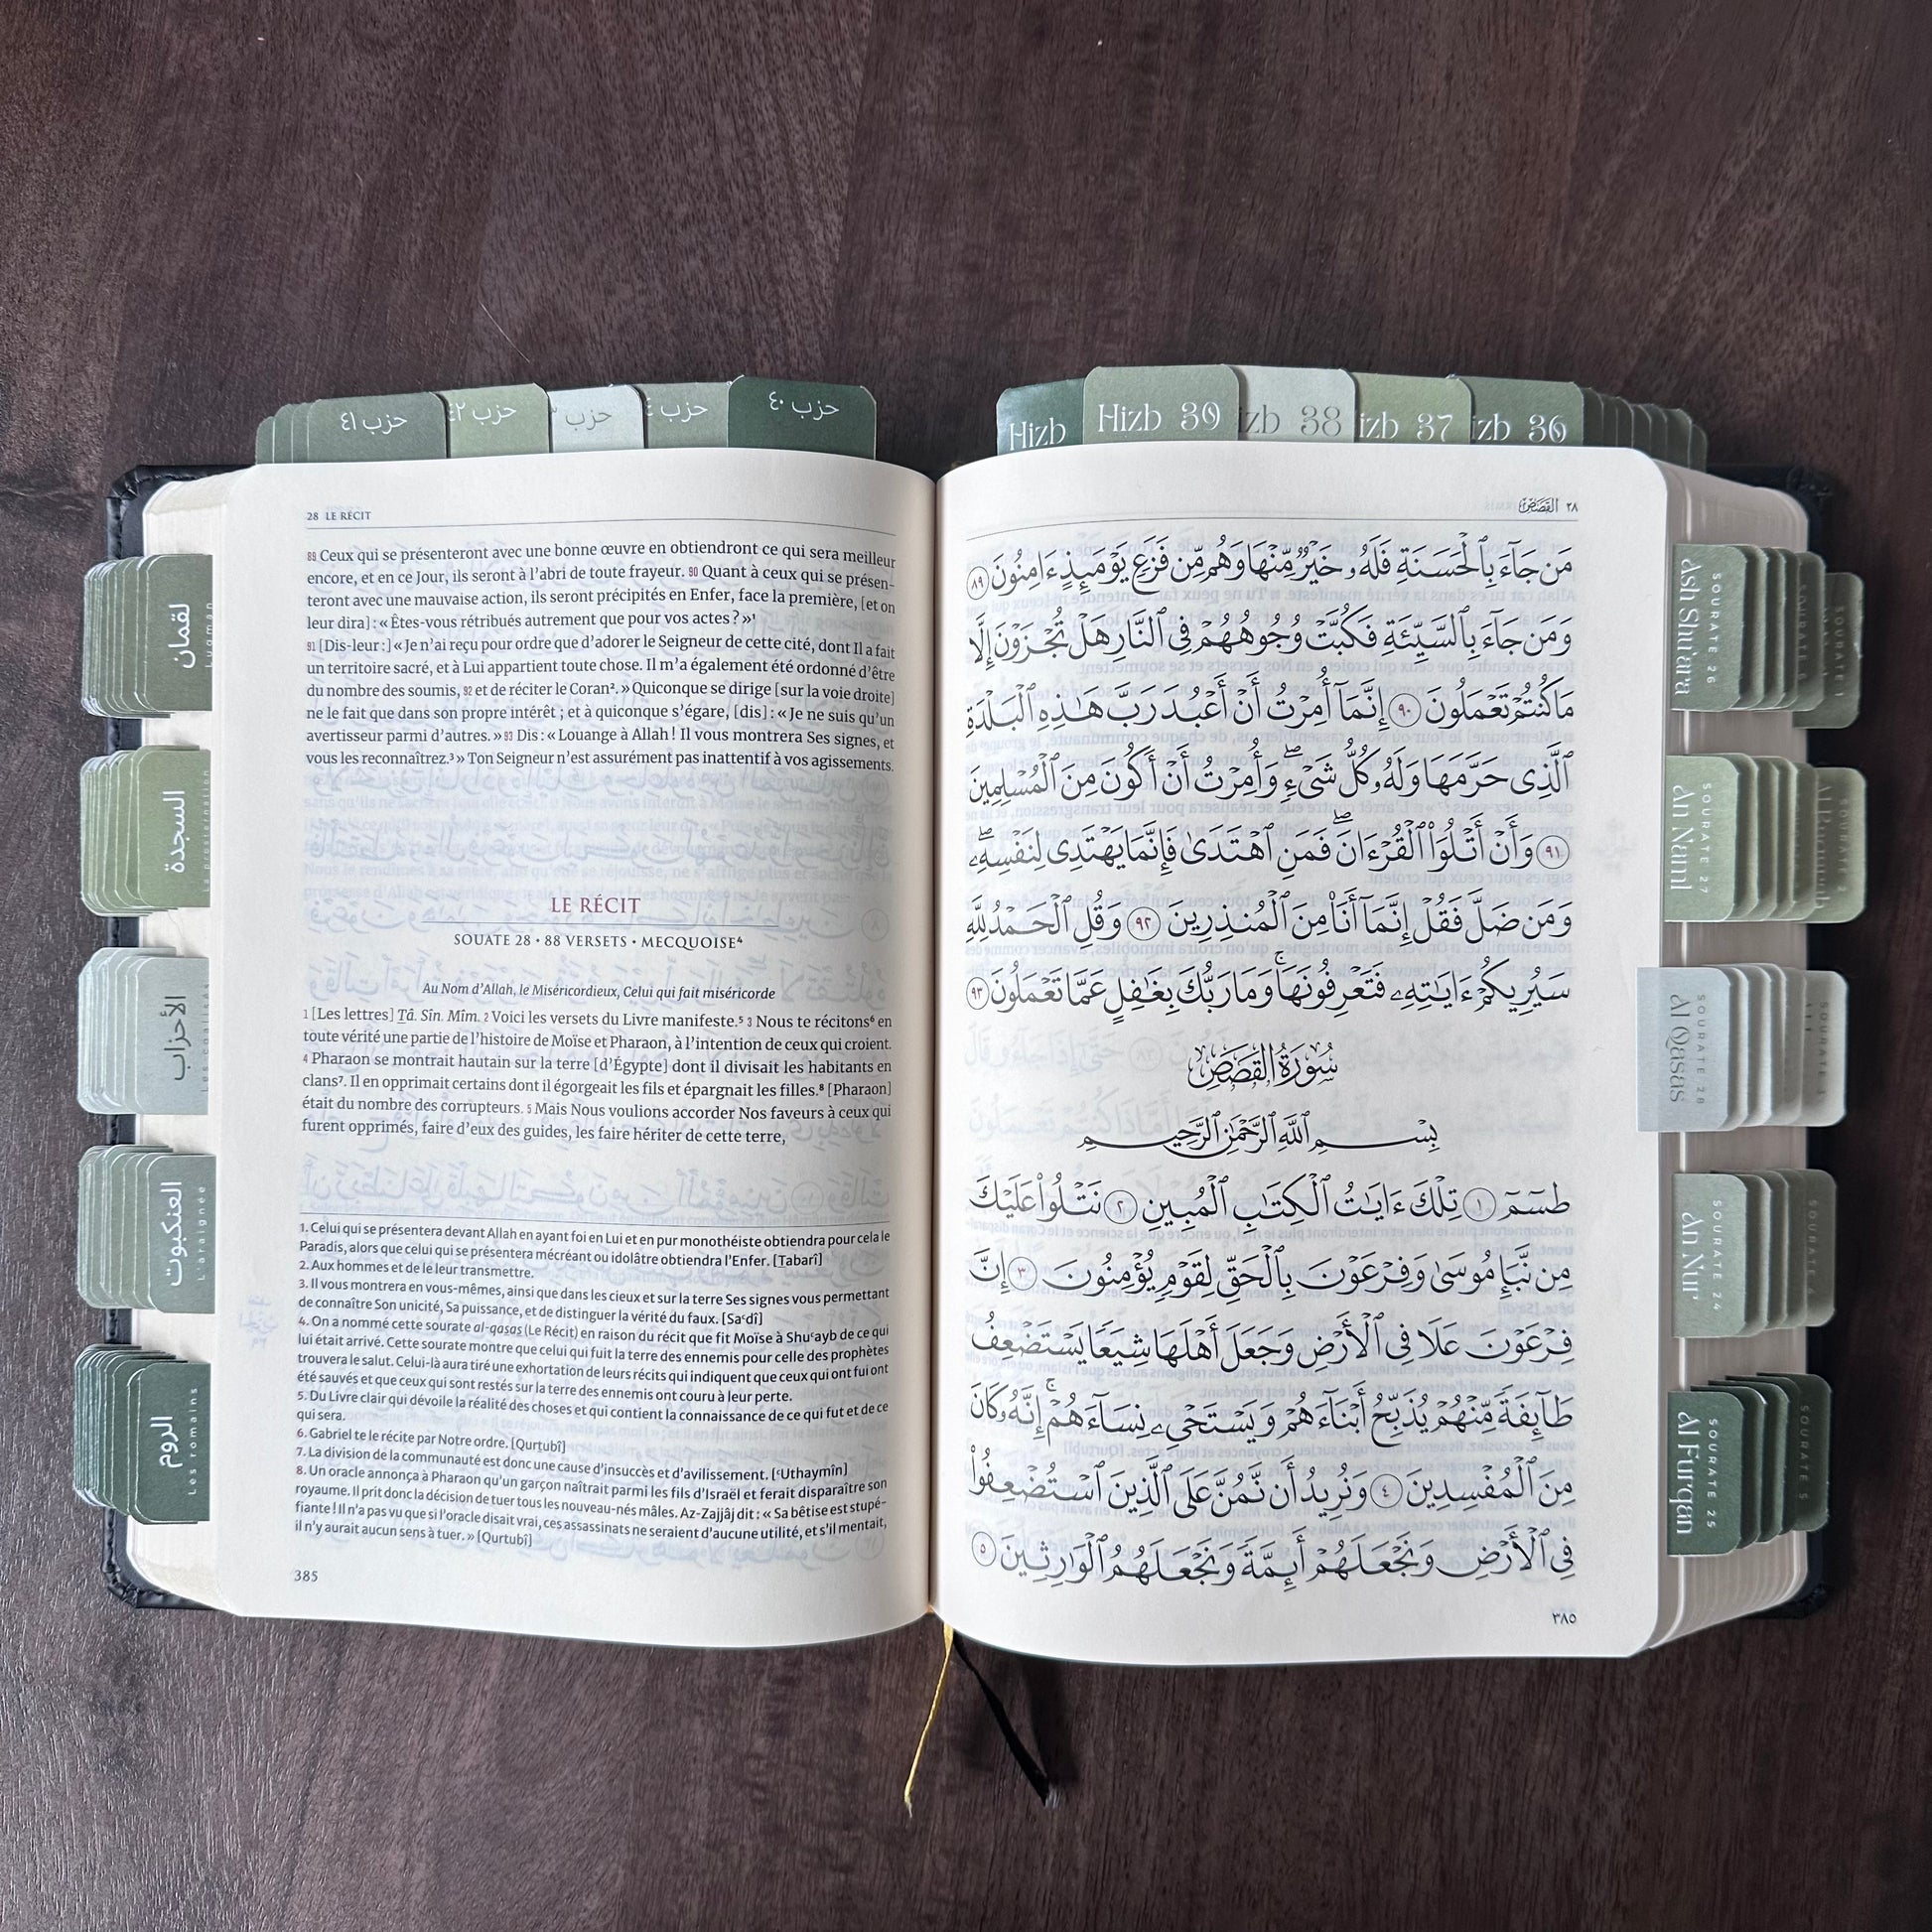 حزب ٤١
حزب ٤٢
حزب
حزب
حزب ٤٠
Hizb
Hizb 39
38
37
36
لقمان
Luqman
السجدة
La prosternation
الأحزاب
Les coalisés
العنكبوت
L'araignée
الروم
Les romains
28 LE RÉCIT
89 Ceux qui se présenteront avec une bonne œuvre en obtiendront ce qui sera meilleur
encore, et en ce Jour, ils seront à l’abri de toute frayeur. 90 Quant à ceux qui se présen-
teront avec une mauvaise action, ils seront précipités en Enfer, face la première, [et on
leur dira] : « Êtes-vous rétribués autrement que pour vos actes ? »¹
91 [Dis-leur :] « Je n’ai reçu pour ordre que d’adorer le Seigneur de cette cité, dont Il a fait
un territoire sacré, et à Lui appartient toute chose. Il m’a également été ordonné d’être
du nombre des soumis, 92 et de réciter le Coran². » Quiconque se dirige [sur la voie droite]
ne le fait que dans son propre intérêt ; et à quiconque s’égare, [dis] : « Je ne suis qu’un
avertisseur parmi d’autres. » 93 Dis : « Louange à Allah ! Il vous montrera Ses signes, et
vous les reconnaîtrez.³ » Ton Seigneur n’est assurément pas inattentif à vos agissements.
LE RÉCIT
SOUATE 28 • 88 VERSETS • MECQUOISE⁴
Au Nom d’Allah, le Miséricordieux, Celui qui fait miséricorde
1 [Les lettres] Ṭâ. Sîn. Mîm. 2 Voici les versets du Livre manifeste.⁵ 3 Nous te récitons⁶ en
toute vérité une partie de l’histoire de Moïse et Pharaon, à l’intention de ceux qui croient.
4 Pharaon se montrait hautain sur la terre [d’Égypte] dont il divisait les habitants en
clans⁷. Il en opprimait certains dont il égorgeait les fils et épargnait les filles.⁸ [Pharaon]
était du nombre des corrupteurs. 5 Mais Nous voulions accorder Nos faveurs à ceux qui
furent opprimés, faire d’eux des guides, les faire hériter de cette terre,
1. Celui qui se présentera devant Allah en ayant foi en Lui et en pur monothéiste obtiendra pour cela le
Paradis, alors que celui qui se présentera mécréant ou idolâtre obtiendra l’Enfer. [Ṭabarî]
2. Aux hommes et de le leur transmettre.
3. Il vous montrera en vous-mêmes, ainsi que dans les cieux et sur la terre Ses signes vous permettant
de connaître Son unicité, Sa puissance, et de distinguer la vérité du faux. [Saʿdî]
4. On a nommé cette sourate al-qasas (Le Récit) en raison du récit que fit Moïse à Shuʿayb de ce qui
lui était arrivé. Cette sourate montre que celui qui fuit la terre des ennemis pour celle des prophètes
trouvera le salut. Celui-là aura tiré une exhortation de leurs récits qui indiquent que ceux qui ont fui ont
été sauvés et que ceux qui sont restés sur la terre des ennemis ont couru à leur perte.
5. Du Livre clair qui dévoile la réalité des choses et qui contient la connaissance de ce qui fut et de ce
qui sera.
6. Gabriel te le récite par Notre ordre. [Qurṭubî]
7. La division de la communauté est donc une cause d’insuccès et d’avilissement. [ʿUthaymîn]
8. Un oracle annonça à Pharaon qu’un garçon naîtrait parmi les fils d’Israël et ferait disparaître son
royaume. Il prit donc la décision de tuer tous les nouveau-nés mâles. Az-Zajjâj dit : « Sa bêtise est stupé-
fiante ! Il n’a pas vu que si l’oracle disait vrai, ces assassinats ne seraient d’aucune utilité, et s’il mentait,
il n’y aurait aucun sens à tuer. » [Qurṭubî]
385
٢٨ القصص
مَن جَآءَ بِٱلْحَسَنَةِ فَلَهُۥ خَيْرٌ مِّنْهَا وَهُم مِّن فَزَعٍ يَوْمَئِذٍ ءَامِنُونَ ٨٩
وَمَن جَآءَ بِٱلسَّيِّئَةِ فَكُبَّتْ وُجُوهُهُمْ فِى ٱلنَّارِ هَلْ تُجْزَوْنَ إِلَّا
مَا كُنتُمْ تَعْمَلُونَ ٩٠ إِنَّمَآ أُمِرْتُ أَنْ أَعْبُدَ رَبَّ هَٰذِهِ ٱلْبَلْدَةِ
ٱلَّذِى حَرَّمَهَا وَلَهُۥ كُلُّ شَىْءٍ ۖ وَأُمِرْتُ أَنْ أَكُونَ مِنَ ٱلْمُسْلِمِينَ
٩١ وَأَنْ أَتْلُوَا۟ ٱلْقُرْءَانَ ۖ فَمَنِ ٱهْتَدَىٰ فَإِنَّمَا يَهْتَدِى لِنَفْسِهِۦ ۖ
وَمَن ضَلَّ فَقُلْ إِنَّمَآ أَنَا۠ مِنَ ٱلْمُنذِرِينَ ٩٢ وَقُلِ ٱلْحَمْدُ لِلَّهِ
سَيُرِيكُمْ ءَايَٰتِهِۦ فَتَعْرِفُونَهَا ۚ وَمَا رَبُّكَ بِغَٰفِلٍ عَمَّا تَعْمَلُونَ ٩٣
سُورَةُ القَصَصِ
بِسْمِ ٱللَّهِ ٱلرَّحْمَٰنِ ٱلرَّحِيمِ
طسٓمٓ ١ تِلْكَ ءَايَٰتُ ٱلْكِتَٰبِ ٱلْمُبِينِ ٢ نَتْلُوا۟ عَلَيْكَ
مِن نَّبَإِ مُوسَىٰ وَفِرْعَوْنَ بِٱلْحَقِّ لِقَوْمٍ يُؤْمِنُونَ ٣ إِنَّ
فِرْعَوْنَ عَلَا فِى ٱلْأَرْضِ وَجَعَلَ أَهْلَهَا شِيَعًا يَسْتَضْعِفُ
طَآئِفَةً مِّنْهُمْ يُذَبِّحُ أَبْنَآءَهُمْ وَيَسْتَحْىِۦ نِسَآءَهُمْ ۚ إِنَّهُۥ كَانَ
مِنَ ٱلْمُفْسِدِينَ ٤ وَنُرِيدُ أَن نَّمُنَّ عَلَى ٱلَّذِينَ ٱسْتُضْعِفُوا۟
فِى ٱلْأَرْضِ وَنَجْعَلَهُمْ أَئِمَّةً وَنَجْعَلَهُمُ ٱلْوَٰرِثِينَ ٥
٣٨٥
SOURATE 26
Ash Shu'ara
SOURATE 6
SOURATE 1
SOURATE 27
An Naml
SOURATE 2
SOURATE 28
Al Qasas
SOURATE 3
SOURATE 24
An Nur'
SOURATE 4
SOURATE 25
Al Furqan
SOURATE 5